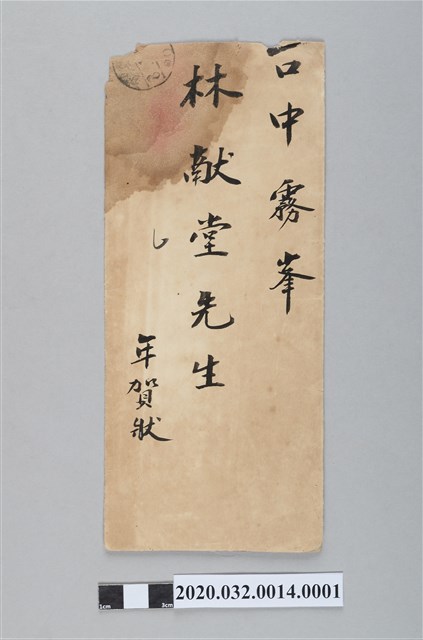 台中霧峯
林献堂先生
年賀狀
1cm 3cm
2020.032.0014.0001